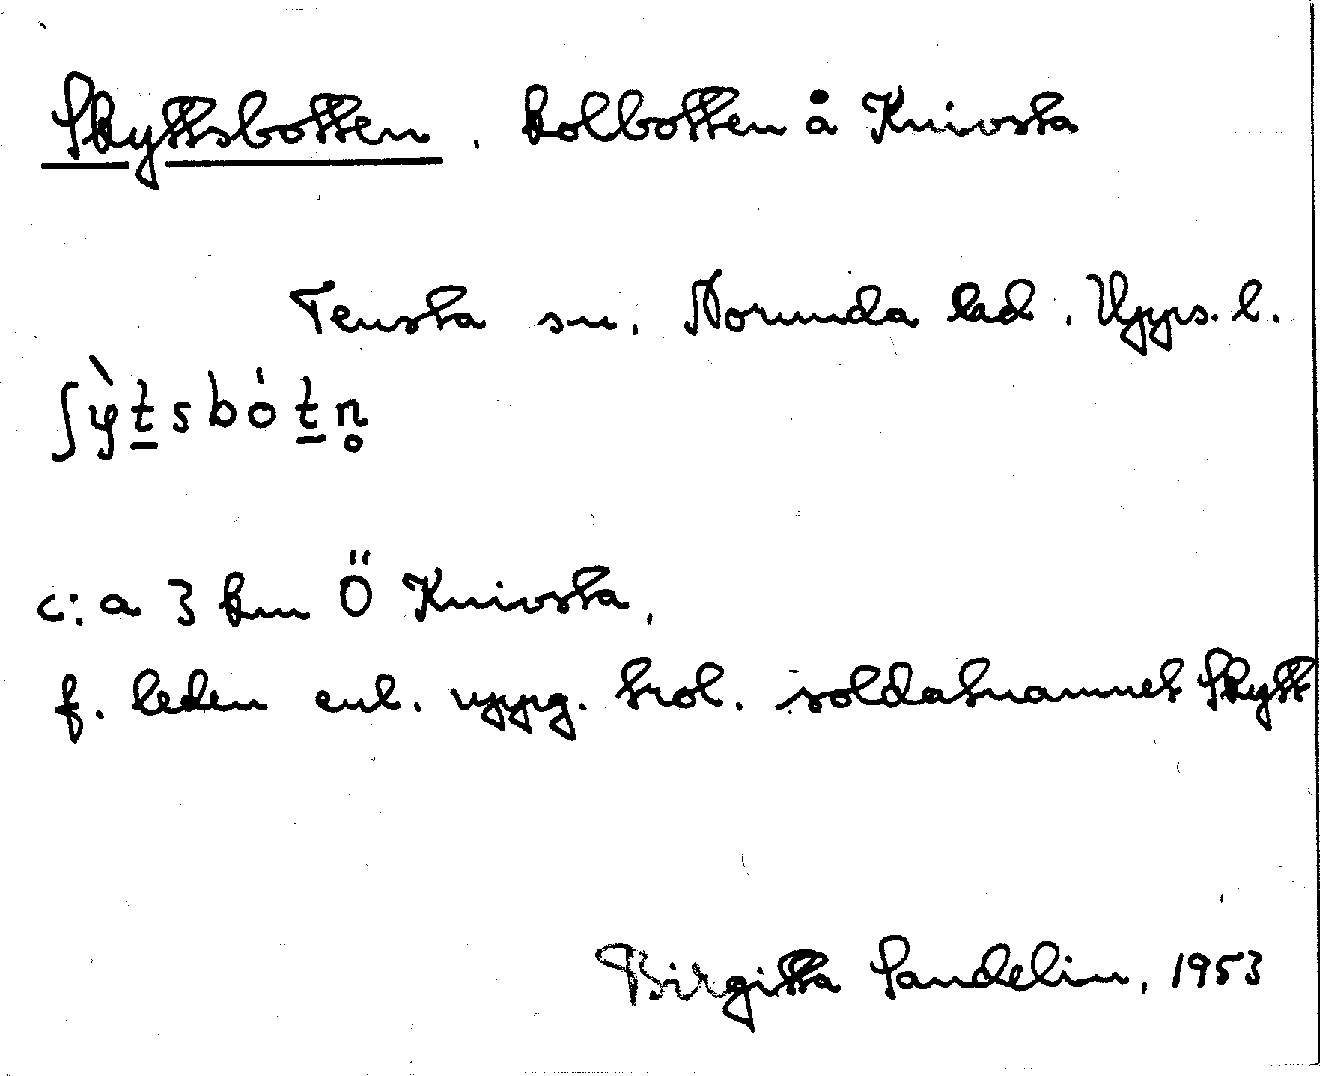 Skyttsbotten, kolbotten å Knivsta
Tensta sn. Norunda hd. Upps. l.
ʃỳt̲sbȯt̲n̥
c:a 3 km Ö Knivsta,
f. leden enl. uppg. trol. soldatnamnet Skytt
Birgitta Sandelin, 1953